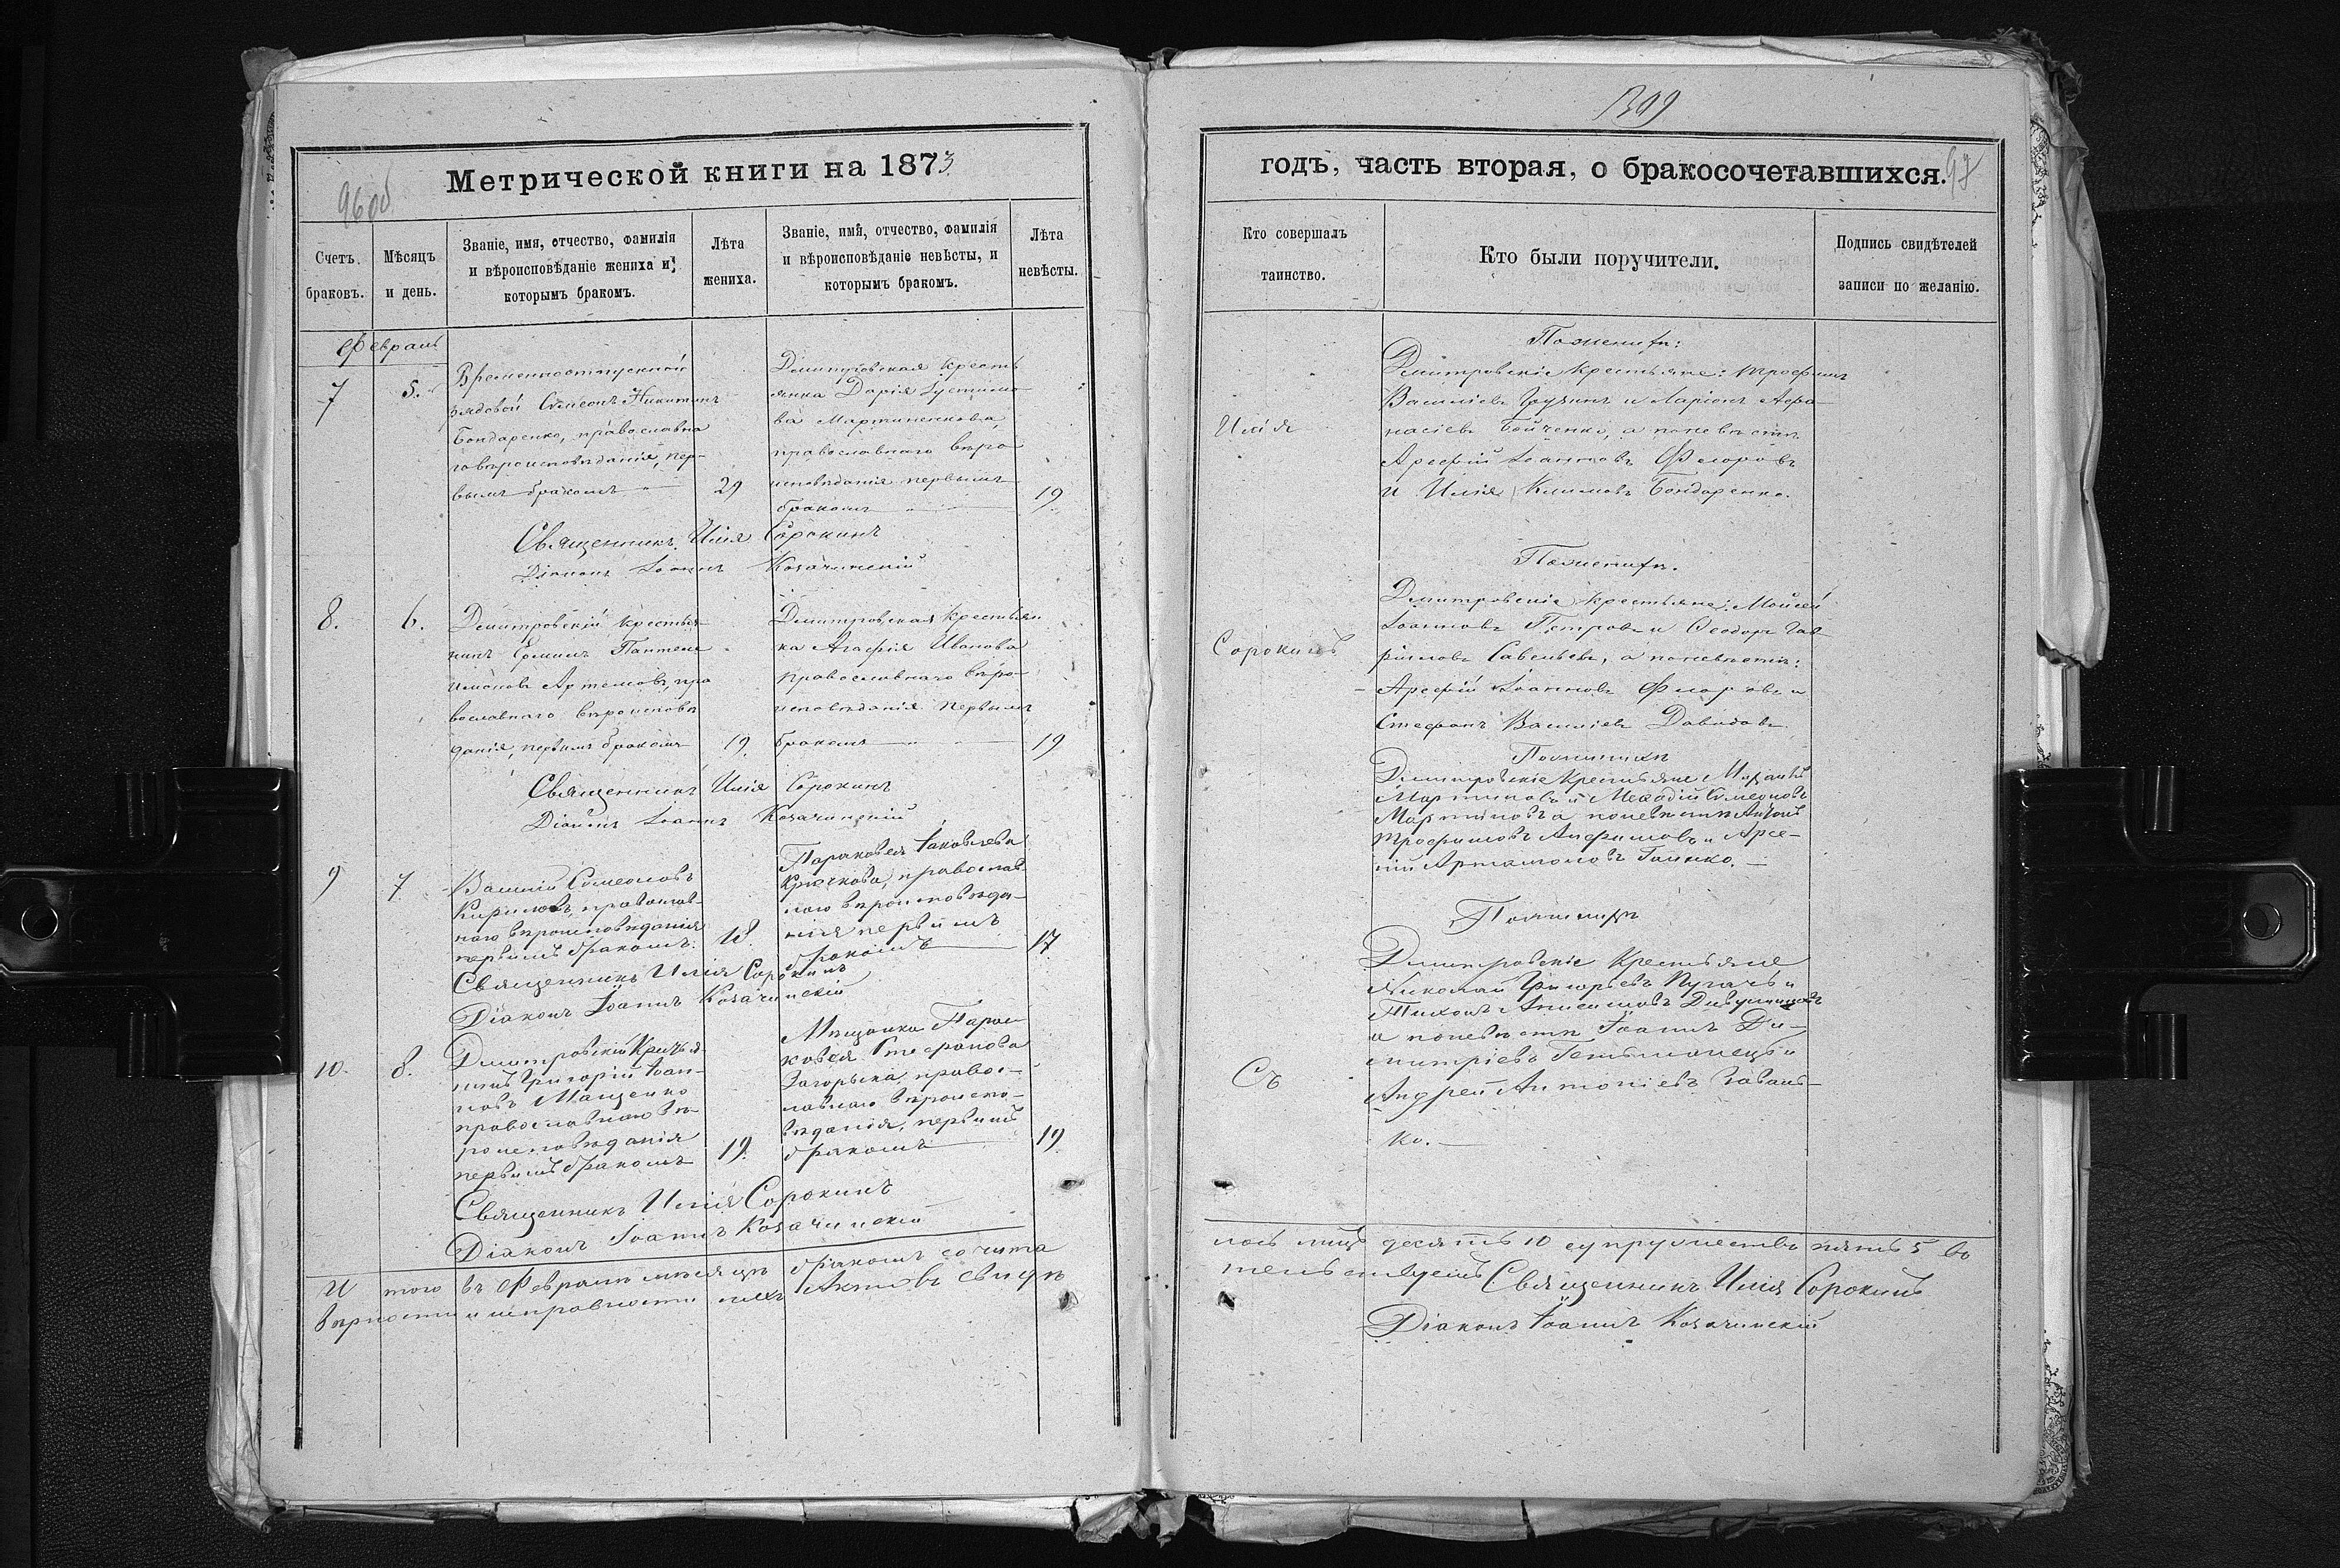 Метрической книги на 1873
96 об
Счетъ браковъ.
Мѣсяцъ и день.
Званіе, имя, отчество, фамилія и вѣроисповѣданіе жениха и которымъ бракомъ.
Лѣта жениха.
Званіе, имя, отчество, фамилія и вѣроисповѣданіе невѣсты, и которымъ бракомъ.
Лѣта невѣсты.
Февраль
7
5.
Временноотпускной
рядовой Симеонъ Никитинъ
Бондаренко, православна
го вѣроисповѣданія, пер-
вымъ бракомъ
29
Дмитровская кресть
янка Дарія Іустино-
ва Мартиненкова,
православнаго вѣро
исповѣданія первымъ
бракомъ
19.
Священникъ Илія Сорокинъ
Діаконъ Іоаннъ Козачинскій
8.
6.
Дмитровскій крестья-
нинъ Ермилъ Пантеле
имоновъ Артемовъ, пра
вославнаго вѣроисповѣ
данія, первымъ бракомъ
19
Дмитровская крестьян
ка Агафія Иванова
православнаго вѣро-
исповѣданія первымъ
бракомъ
19
Священникъ Илія Сорокинъ
Діаконъ Іоаннъ Козачинскій
9
7
Василій Симеоновъ
Кириловъ, православ-
наго вѣроисповѣданія
первымъ бракомъ.
18.
Параковея Іаковлева
Крючкова, православ-
наго вѣроисповѣда-
нія первымъ
бракомъ
17
Священникъ Илія Сорокинъ
Діаконъ Іоаннъ Козачинскій
10.
8.
Дмитровскій Крестья-
нинъ Григорій Іоан-
новъ Мащенко
православнаго вѣ-
роисповѣданія
первымъ бракомъ
19.
Мѣщанка Парас-
ковея Стефанова
Загорska, правос-
лавнаго вѣроиспо-
вѣданія, первымъ
бракомъ
19
Священникъ Илія Сорокинъ
Діаконъ Іоаннъ Козачинскій
И того въ Февралѣ мѣсяцѣ бракомъ сочита
вѣрности и исправности сихъ Актовъ свидѣ
309
годъ, часть вторая, о бракосочетавшихся.
97
Кто совершалъ таинство.
Кто были поручители.
Подпись свидѣтелей записи по желанію.
По женихѣ:
Дмитровскіе крестьяне: Трофимъ
Василіевъ Грузинъ и Ларіонъ Афа-
насіевъ Бойченко, а по невѣстѣ
Арефій Іоанновъ Флоровъ
и Илія Климовъ Бондаренко.
Илія
По женихѣ.
Дмитровскіе крестьяне: Мойсей
Іоанновъ Петровъ и Ѳеодоръ Гав-
ріиловъ Савельевъ, а по невѣстѣ:
Арефій Іоанновъ Флоровъ и
Стефанъ Василіевъ Давидовъ
Сорокинъ
По женихѣ
Дмитровскіе Крестьяне Михаилъ
Мартиновъ и Меѳодій Симеоновъ
Мартиновъ а по невѣстѣ Антонъ
Трофимовъ Анфимовъ и Арсе-
ній Артамоновъ Галико.
По женихѣ
Дмитровскіе Крестьяне
Николай Григорьевъ Пугачъ и
Тихонъ Анисимовъ
а по невѣстѣ Іоаннъ Ди-
митріевъ Гетьманецъ и
Андрей Антоніевъ Коваль-
ко.
Съ
лось лицъ десять 10 супружествъ пять 5 въ
тельствуемъ Священникъ Илія Сорокинъ
Діаконъ Іоаннъ Козачинскій